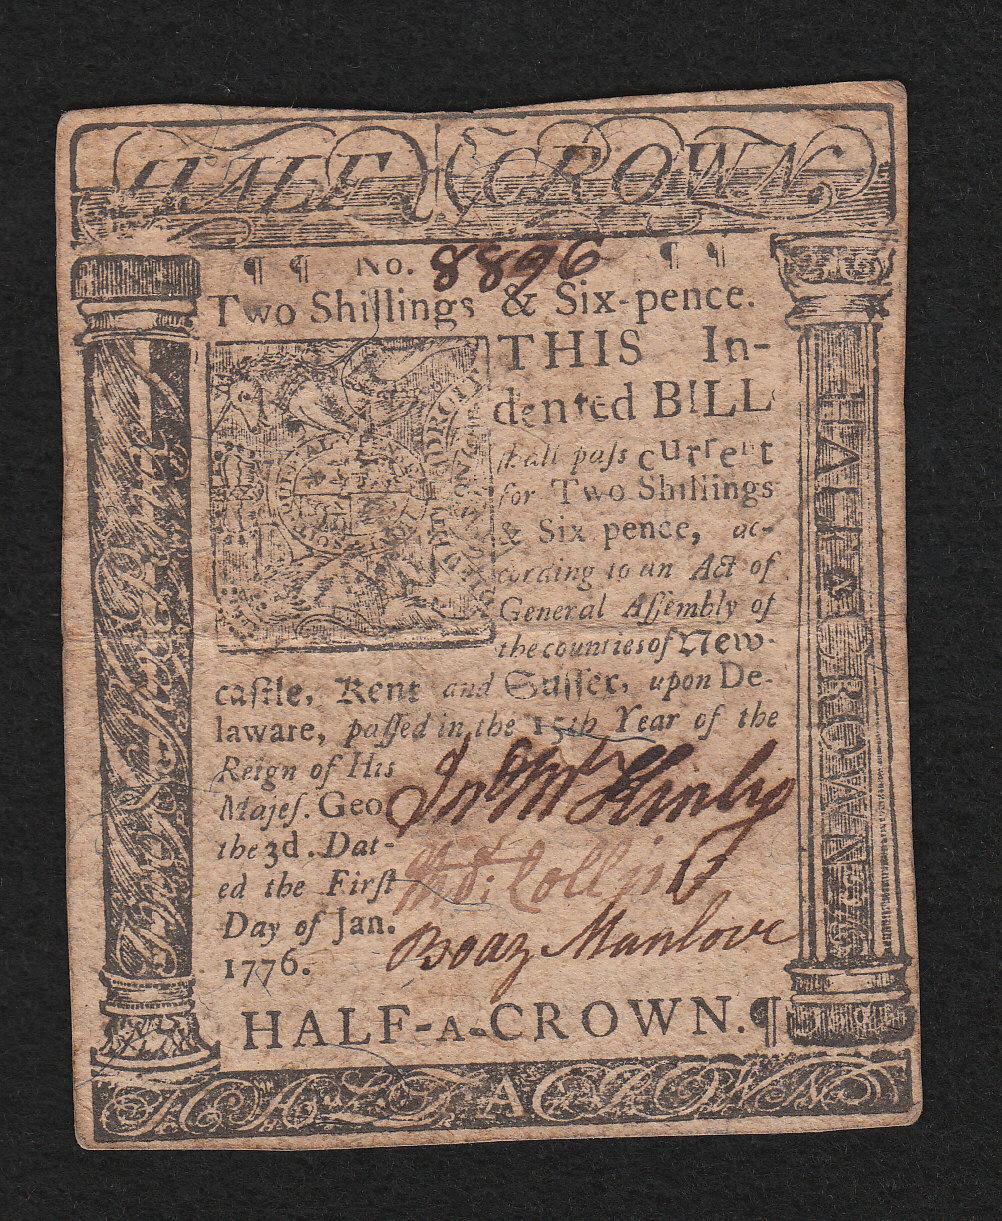 HALF CROWN.
¶ ¶ No. 8896 ¶ ¶
Two Shillings & Six-pence.
THIS In-
dented BILL
shall paſs current
for Two Shillings
& Six pence, ac-
cording to an Act of
General Aſſembly of
the counties of New-
caſtle, Kent and Suſſex, upon De-
laware, paſſed in the 15th Year of the
Reign of His
Majeſ. Geo
the 3d. Dat-
ed the Firſt
Day of Jan.
1776.
Jno McKinly
Thos: Collins
Boaz Manlove
HALF-A-CROWN.¶
HALF A CROWN
HALF A CROWN